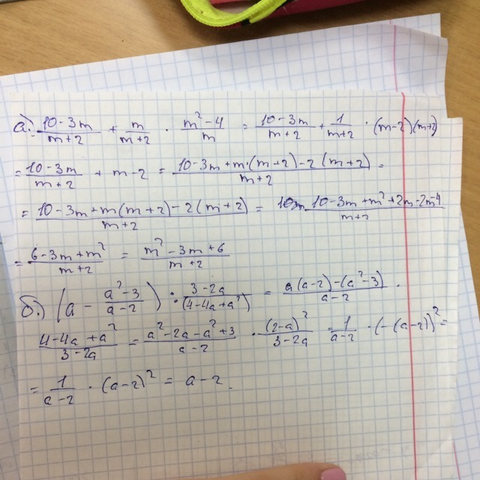 а). (10-3m)/(m+2) + m/(m+2) · (m²-4)/m = (10-3m)/(m+2) + 1/(m+2) · (m-2)(m+2)
= (10-3m)/(m+2) + m-2 = (10-3m+m·(m+2)-2(m+2))/(m+2) =
= (10-3m+m(m+2)-2(m+2))/(m+2) = (10-3m+m²+2m-2m-4)/(m+2)
= (6-3m+m²)/(m+2) = (m²-3m+6)/(m+2)
б). (a - (a²-3)/(a-2)) : (3-2a)/(4-4a+a²) = (a(a-2)-(a²-3))/(a-2) ·
(4-4a+a²)/(3-2a) = (a²-2a-a²+3)/(a-2) · (2-a)²/(3-2a) 1/(a-2) · (-(a-2))² =
= 1/(a-2) · (a-2)² = a-2.